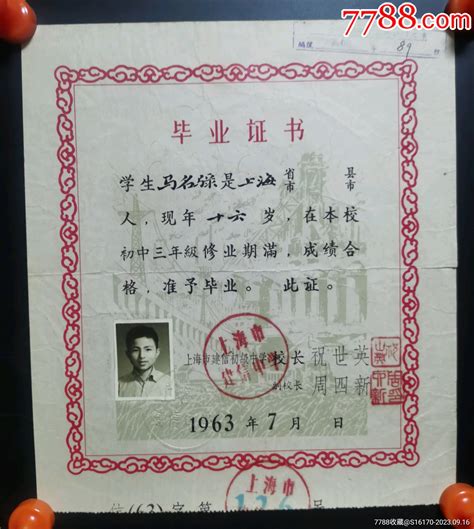 7788.com
编号
89
毕业证书
学生马名琮是上海省市 县市
人，现年十六岁，在本校
初中三年級修业期滿，成绩合
格，准予毕业。此证。
上海市建信初级中学校长 祝世英
副校长 周四新
上海市
建信中学
1963年7月 日
上海市
(63)字第 126 号
7788收藏@S16170-2023.09.16